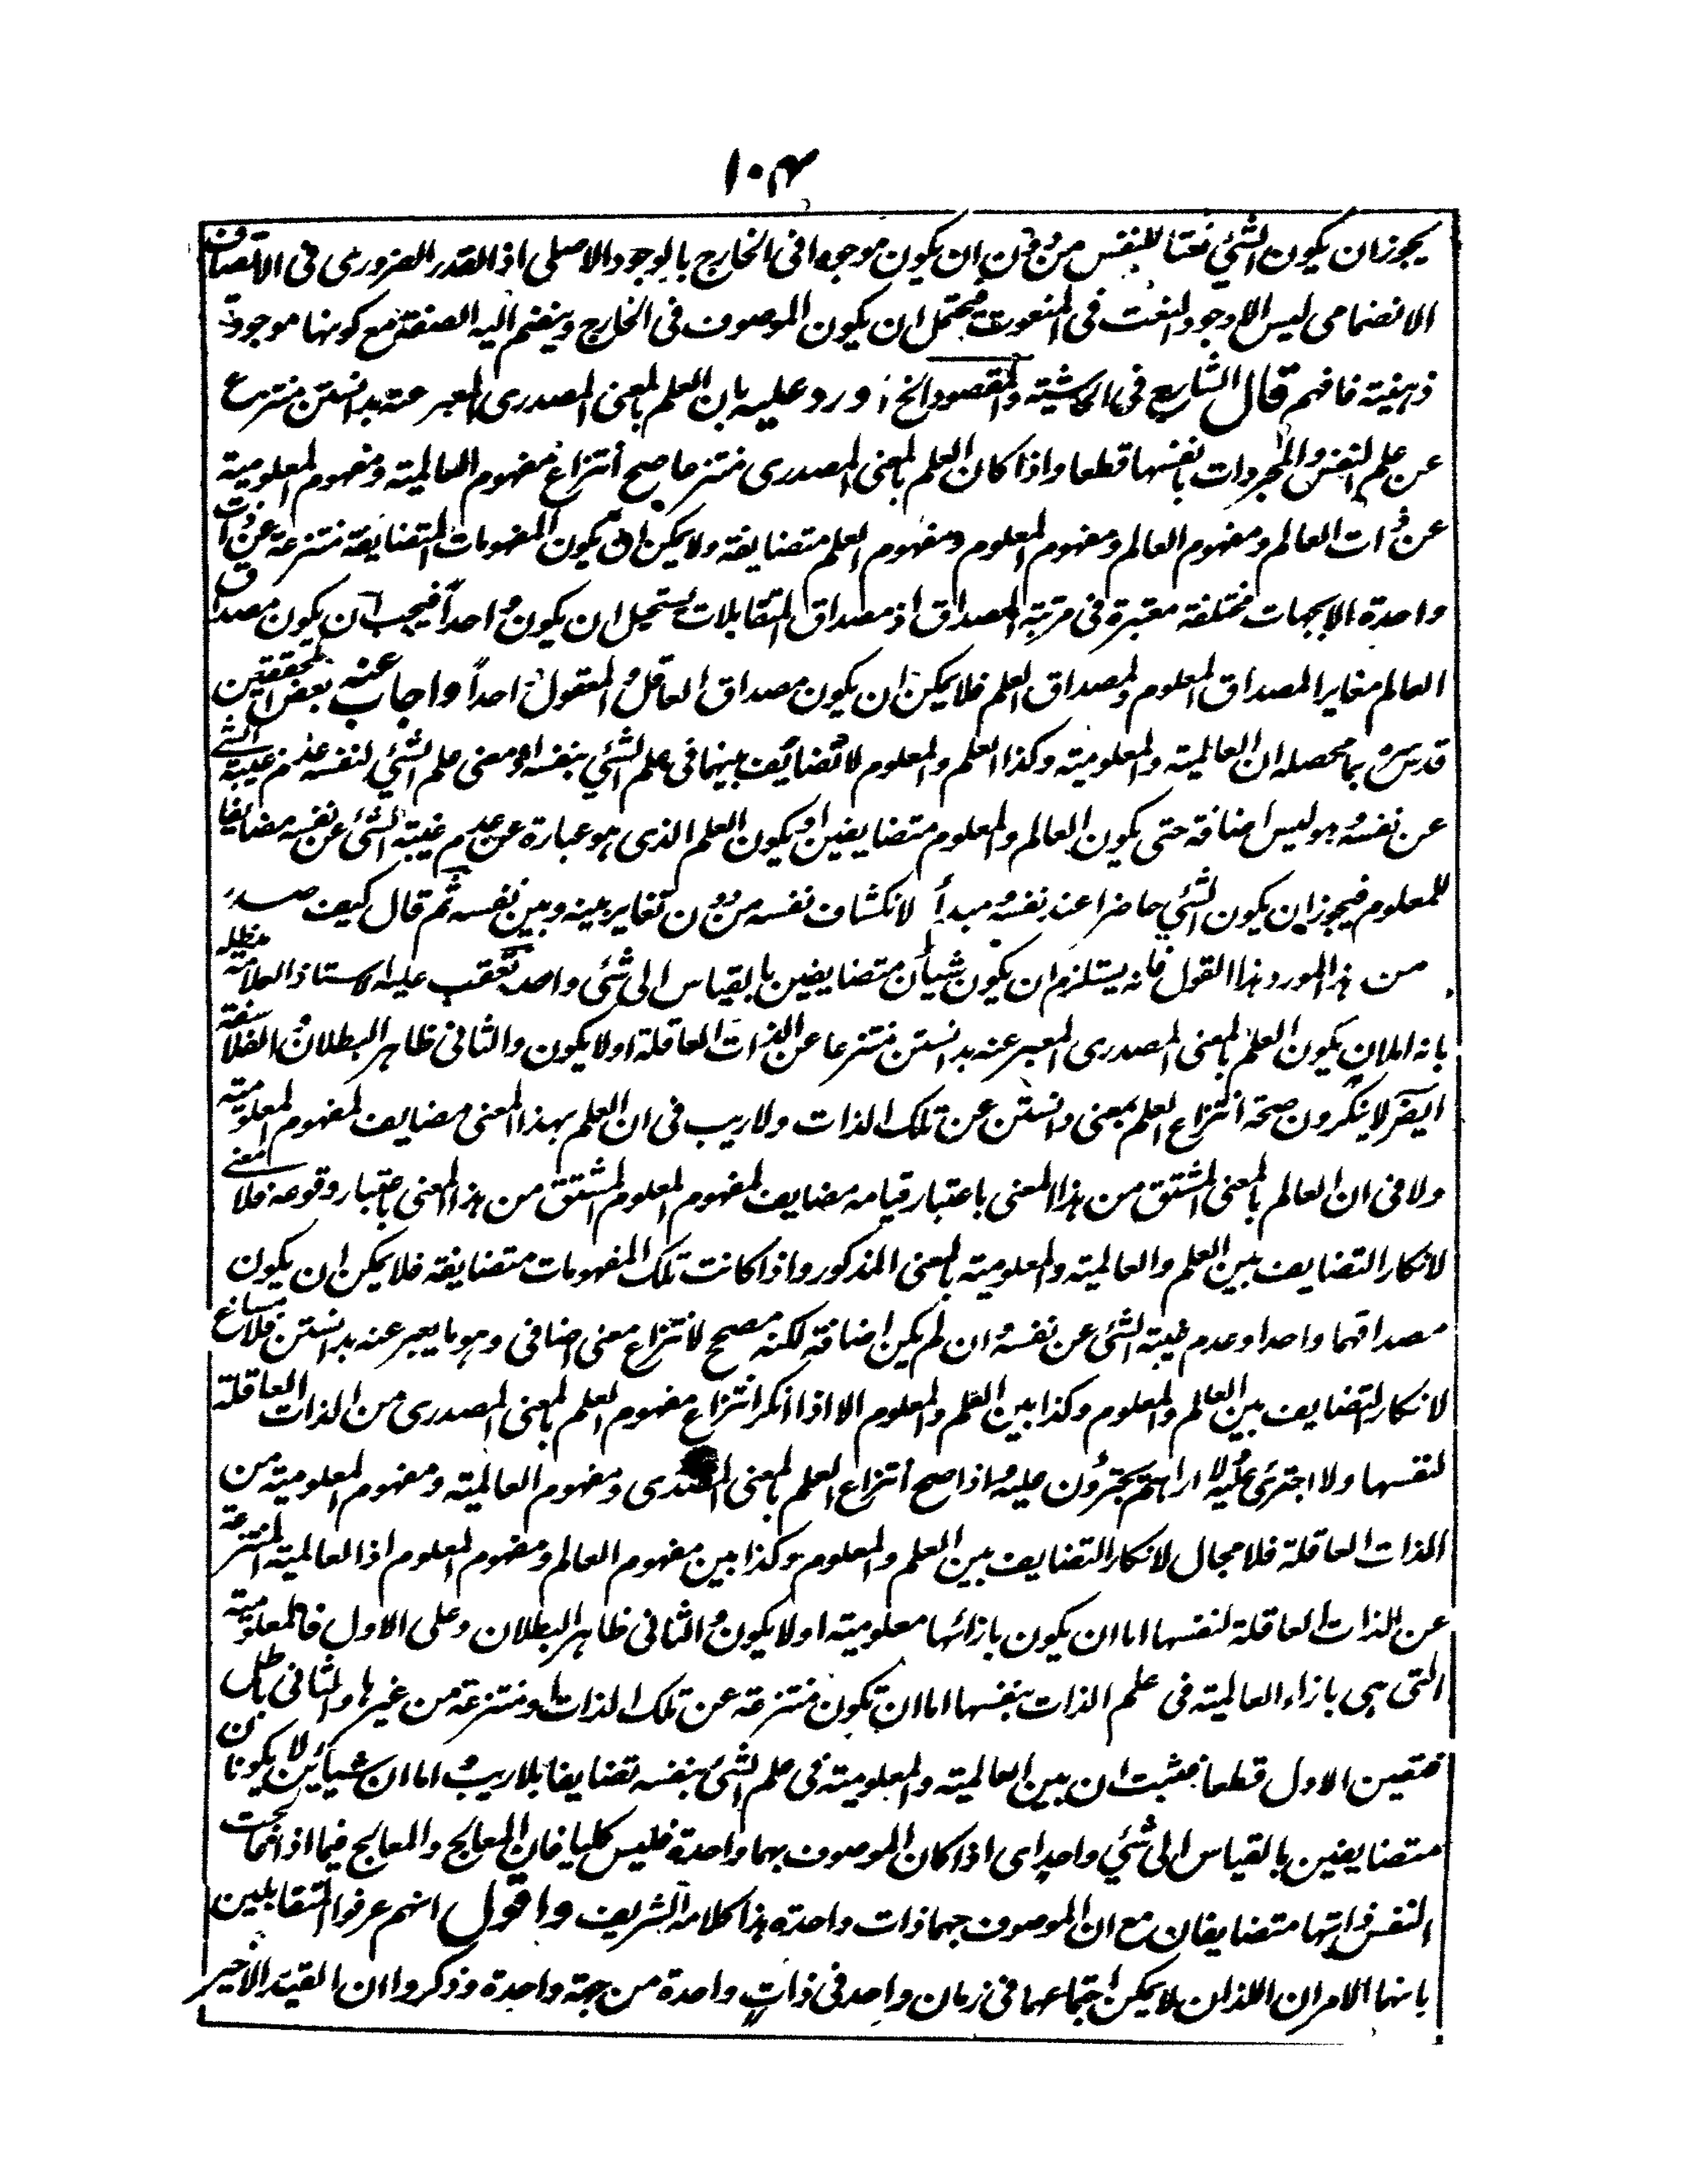 ١٠٤
يجوزان يكون الشئ نعتا للنفس من دون ان يكون موجودا فى الخارج بالوجود الاصلى اذ القدر الضرورى فى الاتصاف
الانضمامى ليس الا وجود النعت فى المنعوت فيحتمل ان يكون الموصوف فى الخارج وينضم اليه الصفة مع كونها موجودة
ذهنية فافهم قال الشارح فى الحاشية والمقصود الخ اورد عليه بان العلم بالمعنى المصدرى المعبر عنه بدانستن منتزع
عن علم النفس والمجردات بانفسها قطعا واذا كان العلم بالمعنى المصدرى منتزعا صح انتزاع مفهوم العالمية ومفهوم المعلومية
عن ذات العالم ومفهوم العالم ومفهوم المعلوم ومفهوم العلم متضايفة ولا يمكن ان يكون المفهومات المتضايفة منتزعة عن ذات
واحدة الا بجهات مختلفة معتبرة فى مرتبة المصداق اذ مصداق المتقابلات يستحيل ان يكون واحداً فيجب ان يكون مصداق
العالم مغايرا لمصداق المعلوم ولمصداق العلم فلا يمكن ان يكون مصداق العاقل والمعقول واحداً واجاب عنه بعض المحققين
قدس سره بما محصله ان العالمية والمعلومية وكذا العلم والمعلوم لا تضايف بينهما فى علم الشئ بنفسه اذ معنى علم الشئ لنفسه عدم غيبة الشئ
عن نفسه وهو ليس اضافة حتى يكون العالم والمعلوم متضايفين او يكون العلم الذى هو عبارة عن عدم غيبة الشئ عن نفسه مضايفا
للمعلوم فيجوز ان يكون الشئ حاضرا عند نفسه ومبدأ لانكشاف نفسه من دون تغاير بينه وبين نفسه ثم قال كيف صدر
من هذا المورد هذا القول فانه يستلزم ان يكون شيأن متضايفين بالقياس الى شئ واحد تعقب عليه الاستاذ العلامة مدظله
بانه اما ان يكون العلم بالمعنى المصدرى المعبر عنه بدانستن منتزعا عن الذات العاقلة اولا يكون والثانى ظاهر البطلان والفلاسفة
ايضا لا ينكرون صحة انتزاع العلم بمعنى دانستن عن تلك الذات ولا ريب فى ان العلم بهذا المعنى مضايف لمفهوم المعلومية
ولا فى ان العالم بالمعنى المشتق من هذا المعنى باعتبار قيامه مضايف لمفهوم المعلوم المشتق من هذا المعنى باعتبار وقوعه فلا معنى
لانكار التضايف بين العلم والعالمية والمعلومية بالمعنى المذكور واذا كانت تلك المفهومات متضايفة فلا يمكن ان يكون
مصداقهما واحدا وعدم غيبة الشئ عن نفسه وان لم يكن اضافة لكنه مصحح لانتزاع معنى اضافى وهو ما يعبر عنه بدانستن فلا مساغ
لانكار التضايف بين العالم والمعلوم وكذا بين العلم والمعلوم الا اذا انكر انتزاع مفهوم العلم بالمعنى المصدرى من الذات العاقلة
لنفسها ولا اجترئ عليه ولا اراهم يجترؤن عليه واذا صح انتزاع العلم بالمعنى المصدرى ومفهوم العالمية ومفهوم المعلومية من
الذات العاقلة فلا مجال لانكار التضايف بين العلم والمعلوم وكذا بين مفهوم العالم ومفهوم المعلوم اذ العالمية المنتزعة
عن الذات العاقلة لنفسها اما ان يكون بازائها معلومية اولا يكون والثانى ظاهر البطلان وعلى الاول فالمعلومية
التى هى بازاء العالمية فى علم الذات بنفسها اما ان تكون منتزعة عن تلك الذات او منتزعة من غيرها والثانى باطل
فتعين الاول قطعا فثبت ان بين العالمية والمعلومية فى علم الشئ بنفسه تضايفا بلا ريب واما ان شيأين لا يكونان
متضايفين بالقياس الى شئ واحد اى اذا كان الموصوف بهما واحدة فليس كليا فان المعالج والمعالج فيما اذا عالجت
النفس ذاتها متضايفان مع ان الموصوف بهما ذات واحدة هذا كلامه الشريف واقول انهم عرفوا المتقابلين
بانهما الامران اللذان لا يمكن اجتماعهما فى زمان واحد فى ذات واحدة من جهة واحدة وذكروا ان القيد الاخير